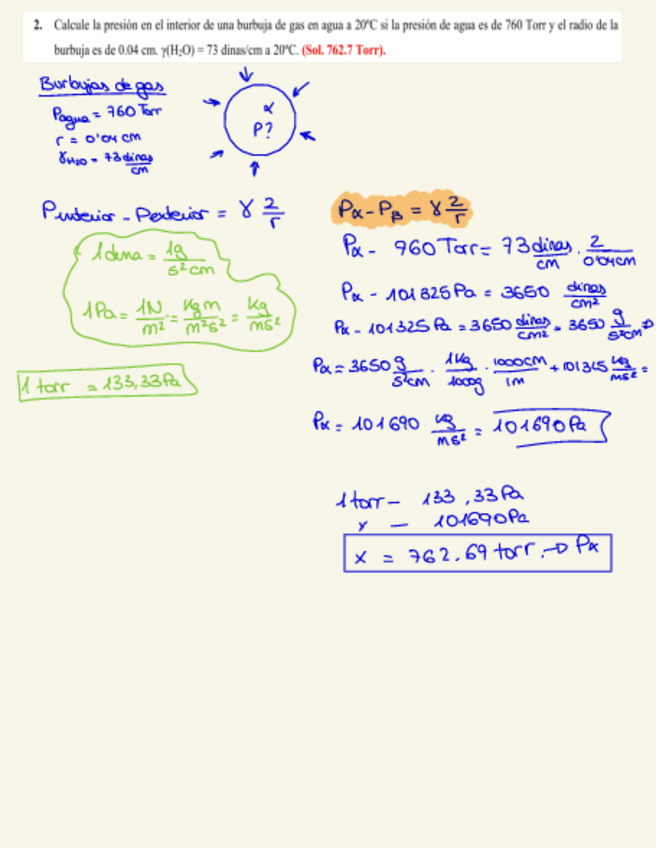 2. Calcule la presión en el interior de una burbuja de gas en agua a 20ºC si la presión de agua es de 760 Torr y el radio de la
burbuja es de 0.04 cm. γ(H₂O) = 73 dinas/cm a 20ºC. (Sol. 762.7 Torr).
Burbujas de gas
Pagua = 760 Torr
r = 0'04 cm
γH2O = 73 dinas/cm
α
P?
Pinterior - Pexterior = γ 2/r
1 dina = 1g/s²cm
1Pa = 1N/m² = Kg m/m²s² = Kg/ms²
1 torr = 133,33 Pa
Pα - Pβ = γ 2/r
Pα - 960 Torr = 73 dinas/cm · 2/0'04cm
Pα - 101325 Pa = 3650 dinas/cm²
Pα - 101325 Pa = 3650 dinas/cm² = 3650 g/s²cm
Pα = 3650 g/s²cm · 1Kg/1000g · 1000cm/1m + 101325 Kg/ms² =
Pα = 101690 Kg/ms² = 101690 Pa
1 torr - 133,33 Pa
x - 101690 Pa
x = 762.69 torr. → Pα